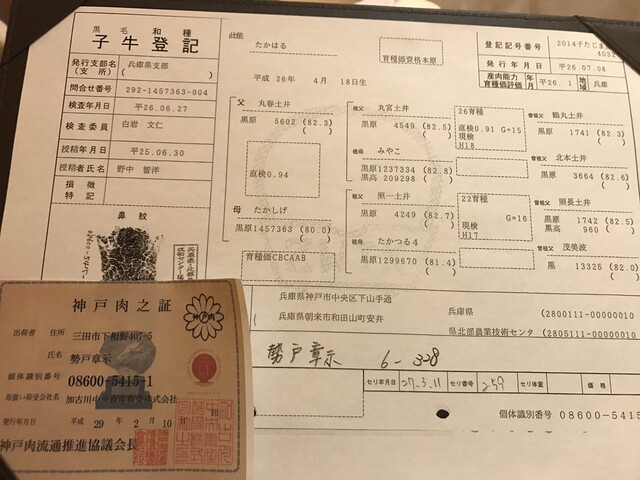 黒毛和種
子牛登記
此能
たかはる
育種価資格本原
登記記号番号
2014子たじま
4032
発行支部名
(支所)
兵庫県支部
発行年月日
平26.07.08
平成 26年 4月 18日生
産肉能力
育種価評価
年月
平26.1
地域
兵庫
問合せ番号
292-1457363-004
検査年月日
平26.06.27
検査委員
白岩 文仁
授精年月日
平25.06.30
授精者氏名
野中 智洋
損徴
特記
鼻紋
父
丸春土井
黒原 5602 (82.3)
直検0.94
母
たかしげ
黒原1457363 (80.0)
育種価CBCAAB
祖父
丸宮土井
黒原 4549 (82.5)
祖母
みやこ
黒原1237334 (82.8)
黒高 209298
祖父
照一土井
黒原 4249 (82.7)
祖母
たかつる4
黒原1299670 (81.4)
26育種
直検0.91 G=15
現検
H18
22育種
G=16
現検
H17
曾祖父
鶴丸土井
黒原 1741 (82.3)
曾祖父
北本土井
黒原 3664 (82.6)
曾祖父
照長土井
黒原 1742 (82.5)
黒高 960
曾祖父
茂美波
黒 13325 (82.0)
兵庫県神戸市中央区下山手通
兵庫県
(2800111-00000010
兵庫県朝来市和田山町安井
県北部農業技術センタ
(2805111-00000010
勢戸章示
6-328
セリ年月日
27.3.11
セリ番号
259
セリ体重
価格
個体識別番号 08600-5415
神戸肉之証
神戸肉
出荷者
住所
三田市下相野407-5
氏名
勢戸章示
個体識別番号
08600-5415-1
取扱い荷受会社名
加古川中央畜産荷受株式会社
発行年月日
平成 29年 2月 10日
神戸肉流通推進協議会長